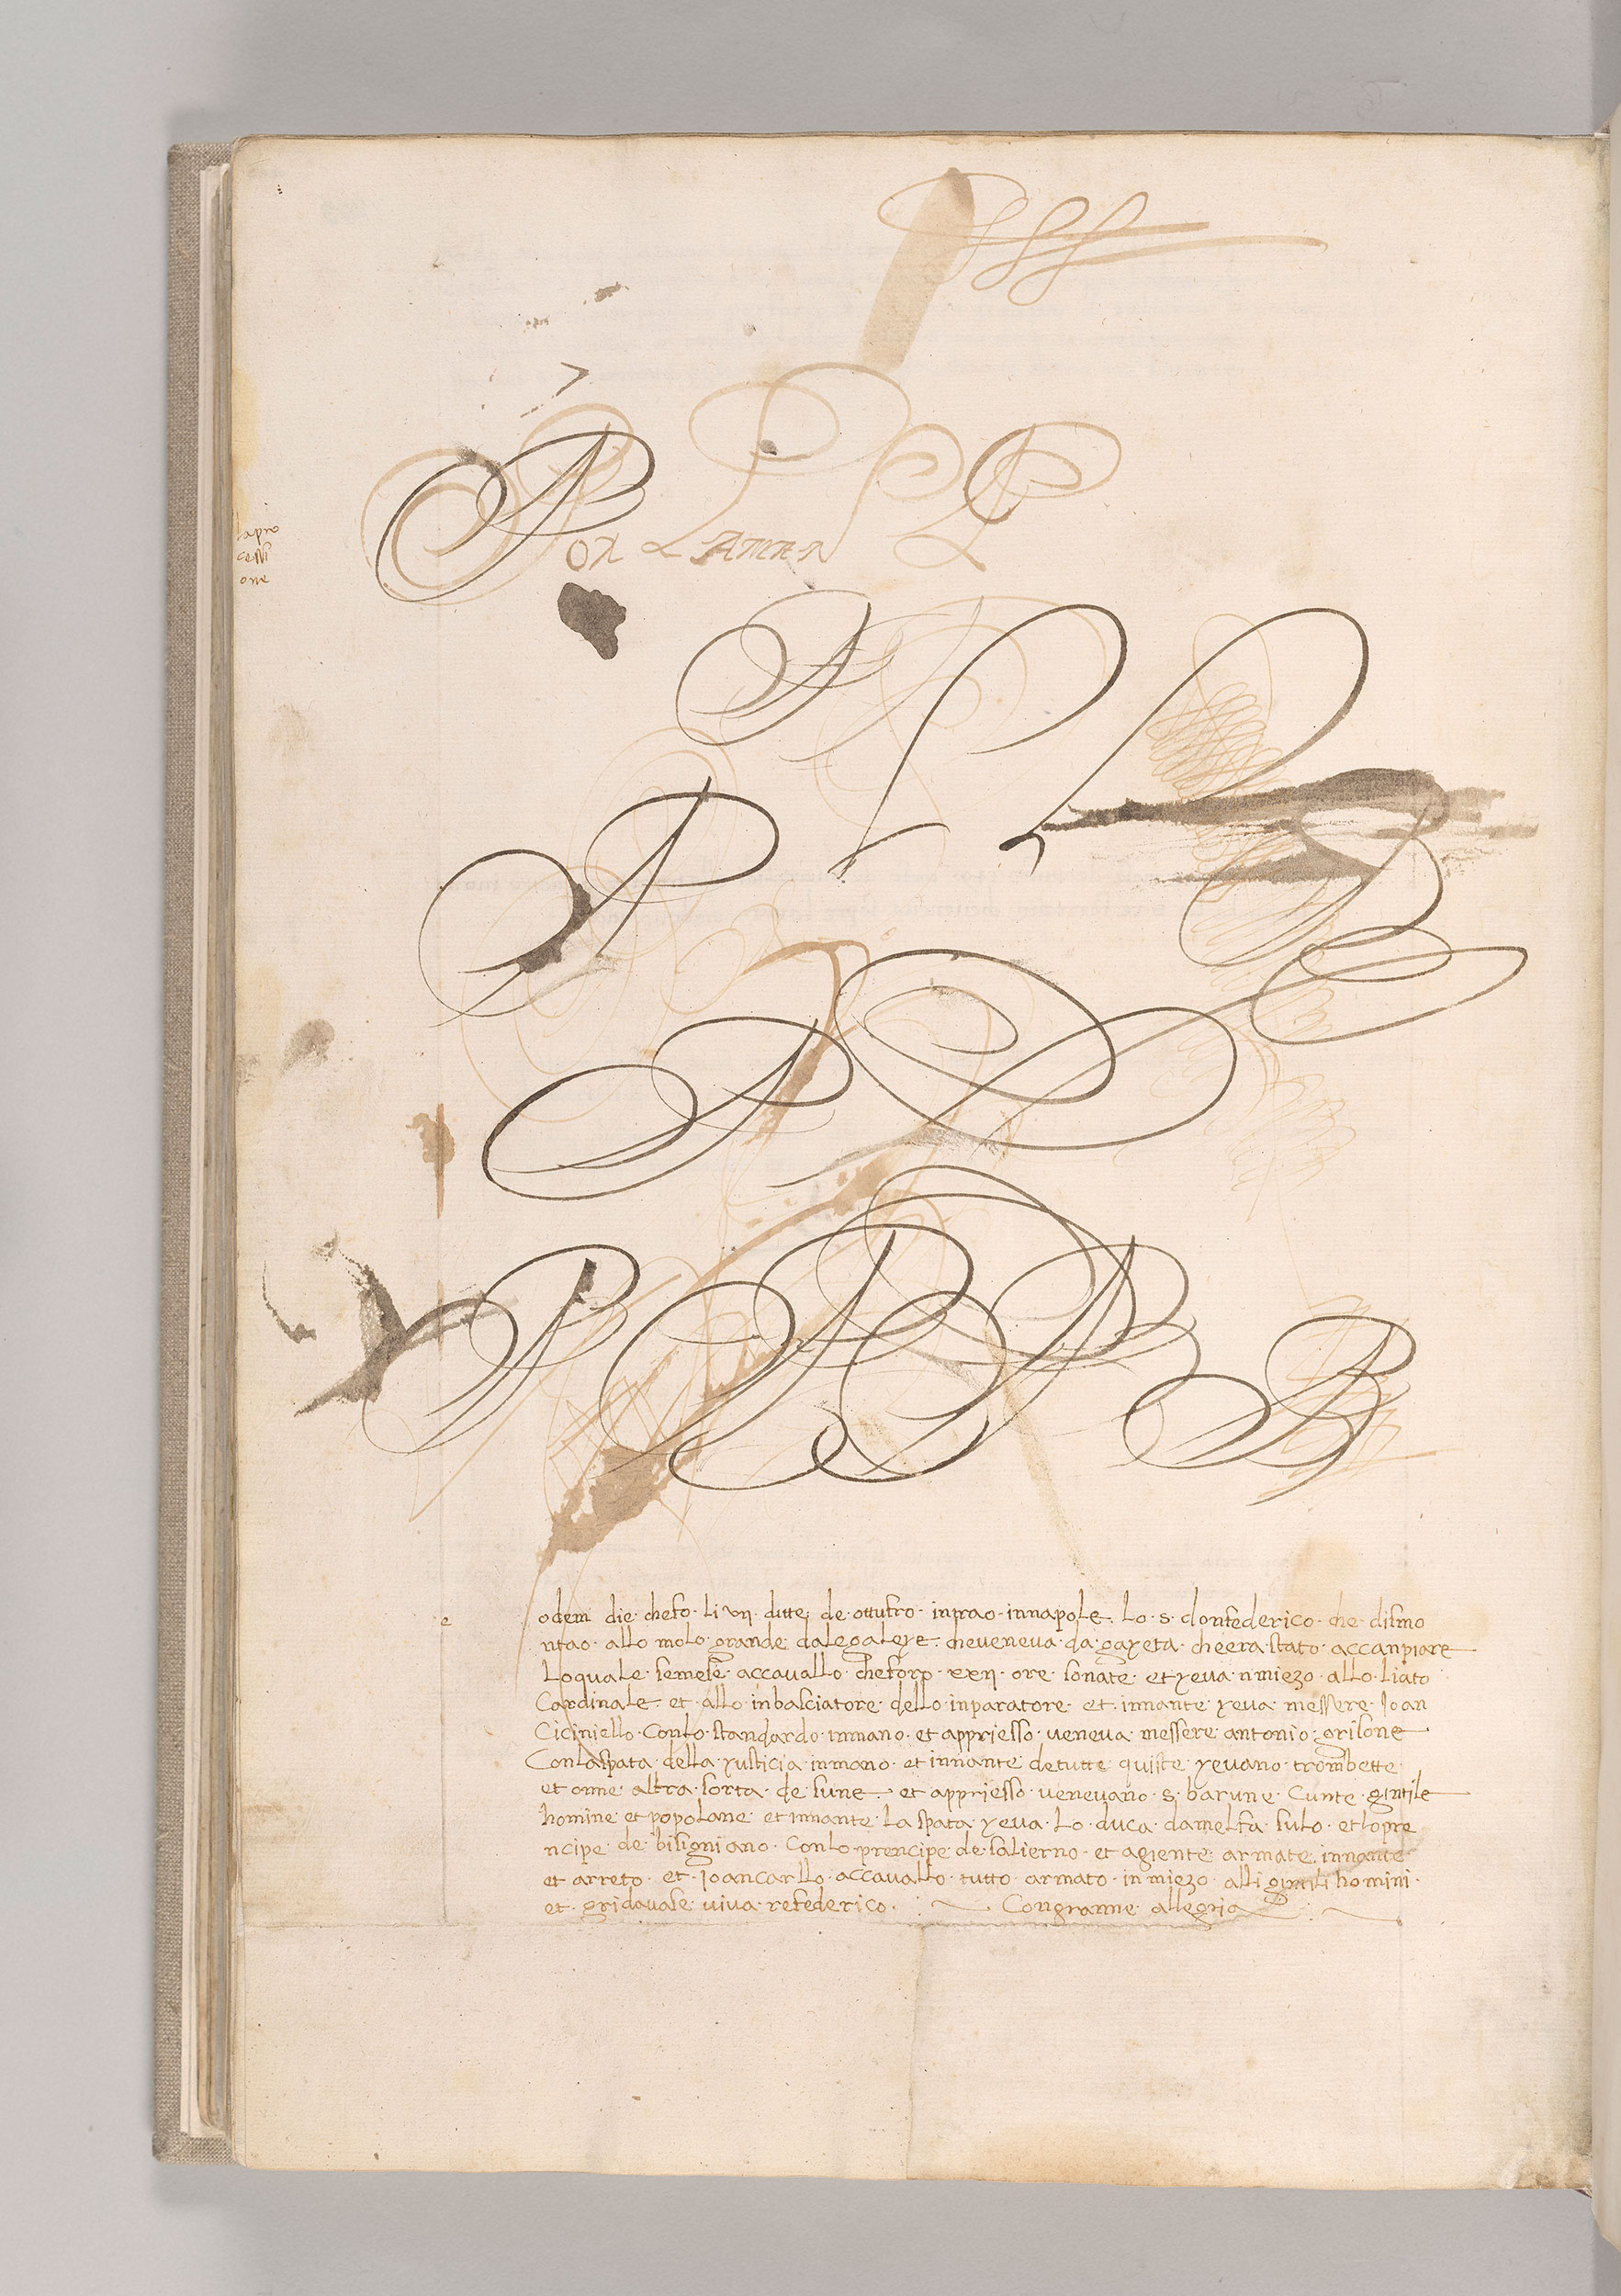 la pro
cessi
one
e
odem die cheto · li vii · ditte de ottufro · intrao · innapole · Lo · s · donfederico · che · dismo
ntao · allo molo · grande dalegaleye · cheveneva · da · gayeta · cheera · stato · accanpiare
Loquale · semese accavallo · cheforo · xxii · ore · sonate · et yeva · nmiezo · allo · liato
Cardinale · et · allo · inbasciatore · dello · inparatore · et · innante · yeva · messere · Joan
Ciciniello · Conlo · standardo · inmano · et appriesso · veneva · messere · antonio · grisone
Conlaspata · della · yusticia · inmano · et innante · detutte · quiste · yevano · trombette
et onne · altra · sorta · de sune · et appriesso · venevano · s · barune · Cunte · gintile
homine et popolane · et innante · La spata · yeva · Lo · duca · damelfa · sulo · et lopre
ncipe · de · bisigniano · Conlo prencipe de salierno · et agiente · armate · innante
et arreto · et · Joancarllo · accavallo · tutto · armato · in miezo · alli gintili homini ·
et · gridavase viva · refederico · Congranne · allegria